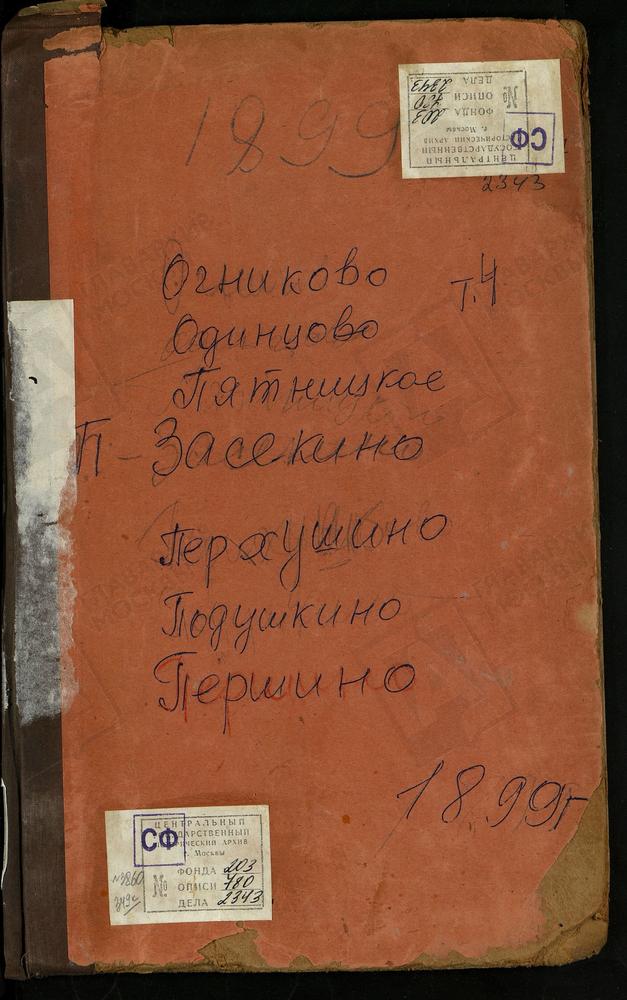 1899
ЦЕНТРАЛЬНЫЙ
ГОСУДАРСТВЕННЫЙ
ИСТОРИЧЕСКИЙ АРХИВ
г. Москвы
СФ
ФОНДА 203
№ ОПИСИ 780
ДЕЛА 2343
2343
Огниково
т.4
Одинцово
Пятницкое
П - Засекино
Перхушино
Подушкино
Першино
1899г
ЦЕНТРАЛЬНЫЙ
ГОСУДАРСТВЕННЫЙ
ИСТОРИЧЕСКИЙ АРХИВ
г. Москвы
СФ
ФОНДА 203
№ ОПИСИ 780
ДЕЛА 2343